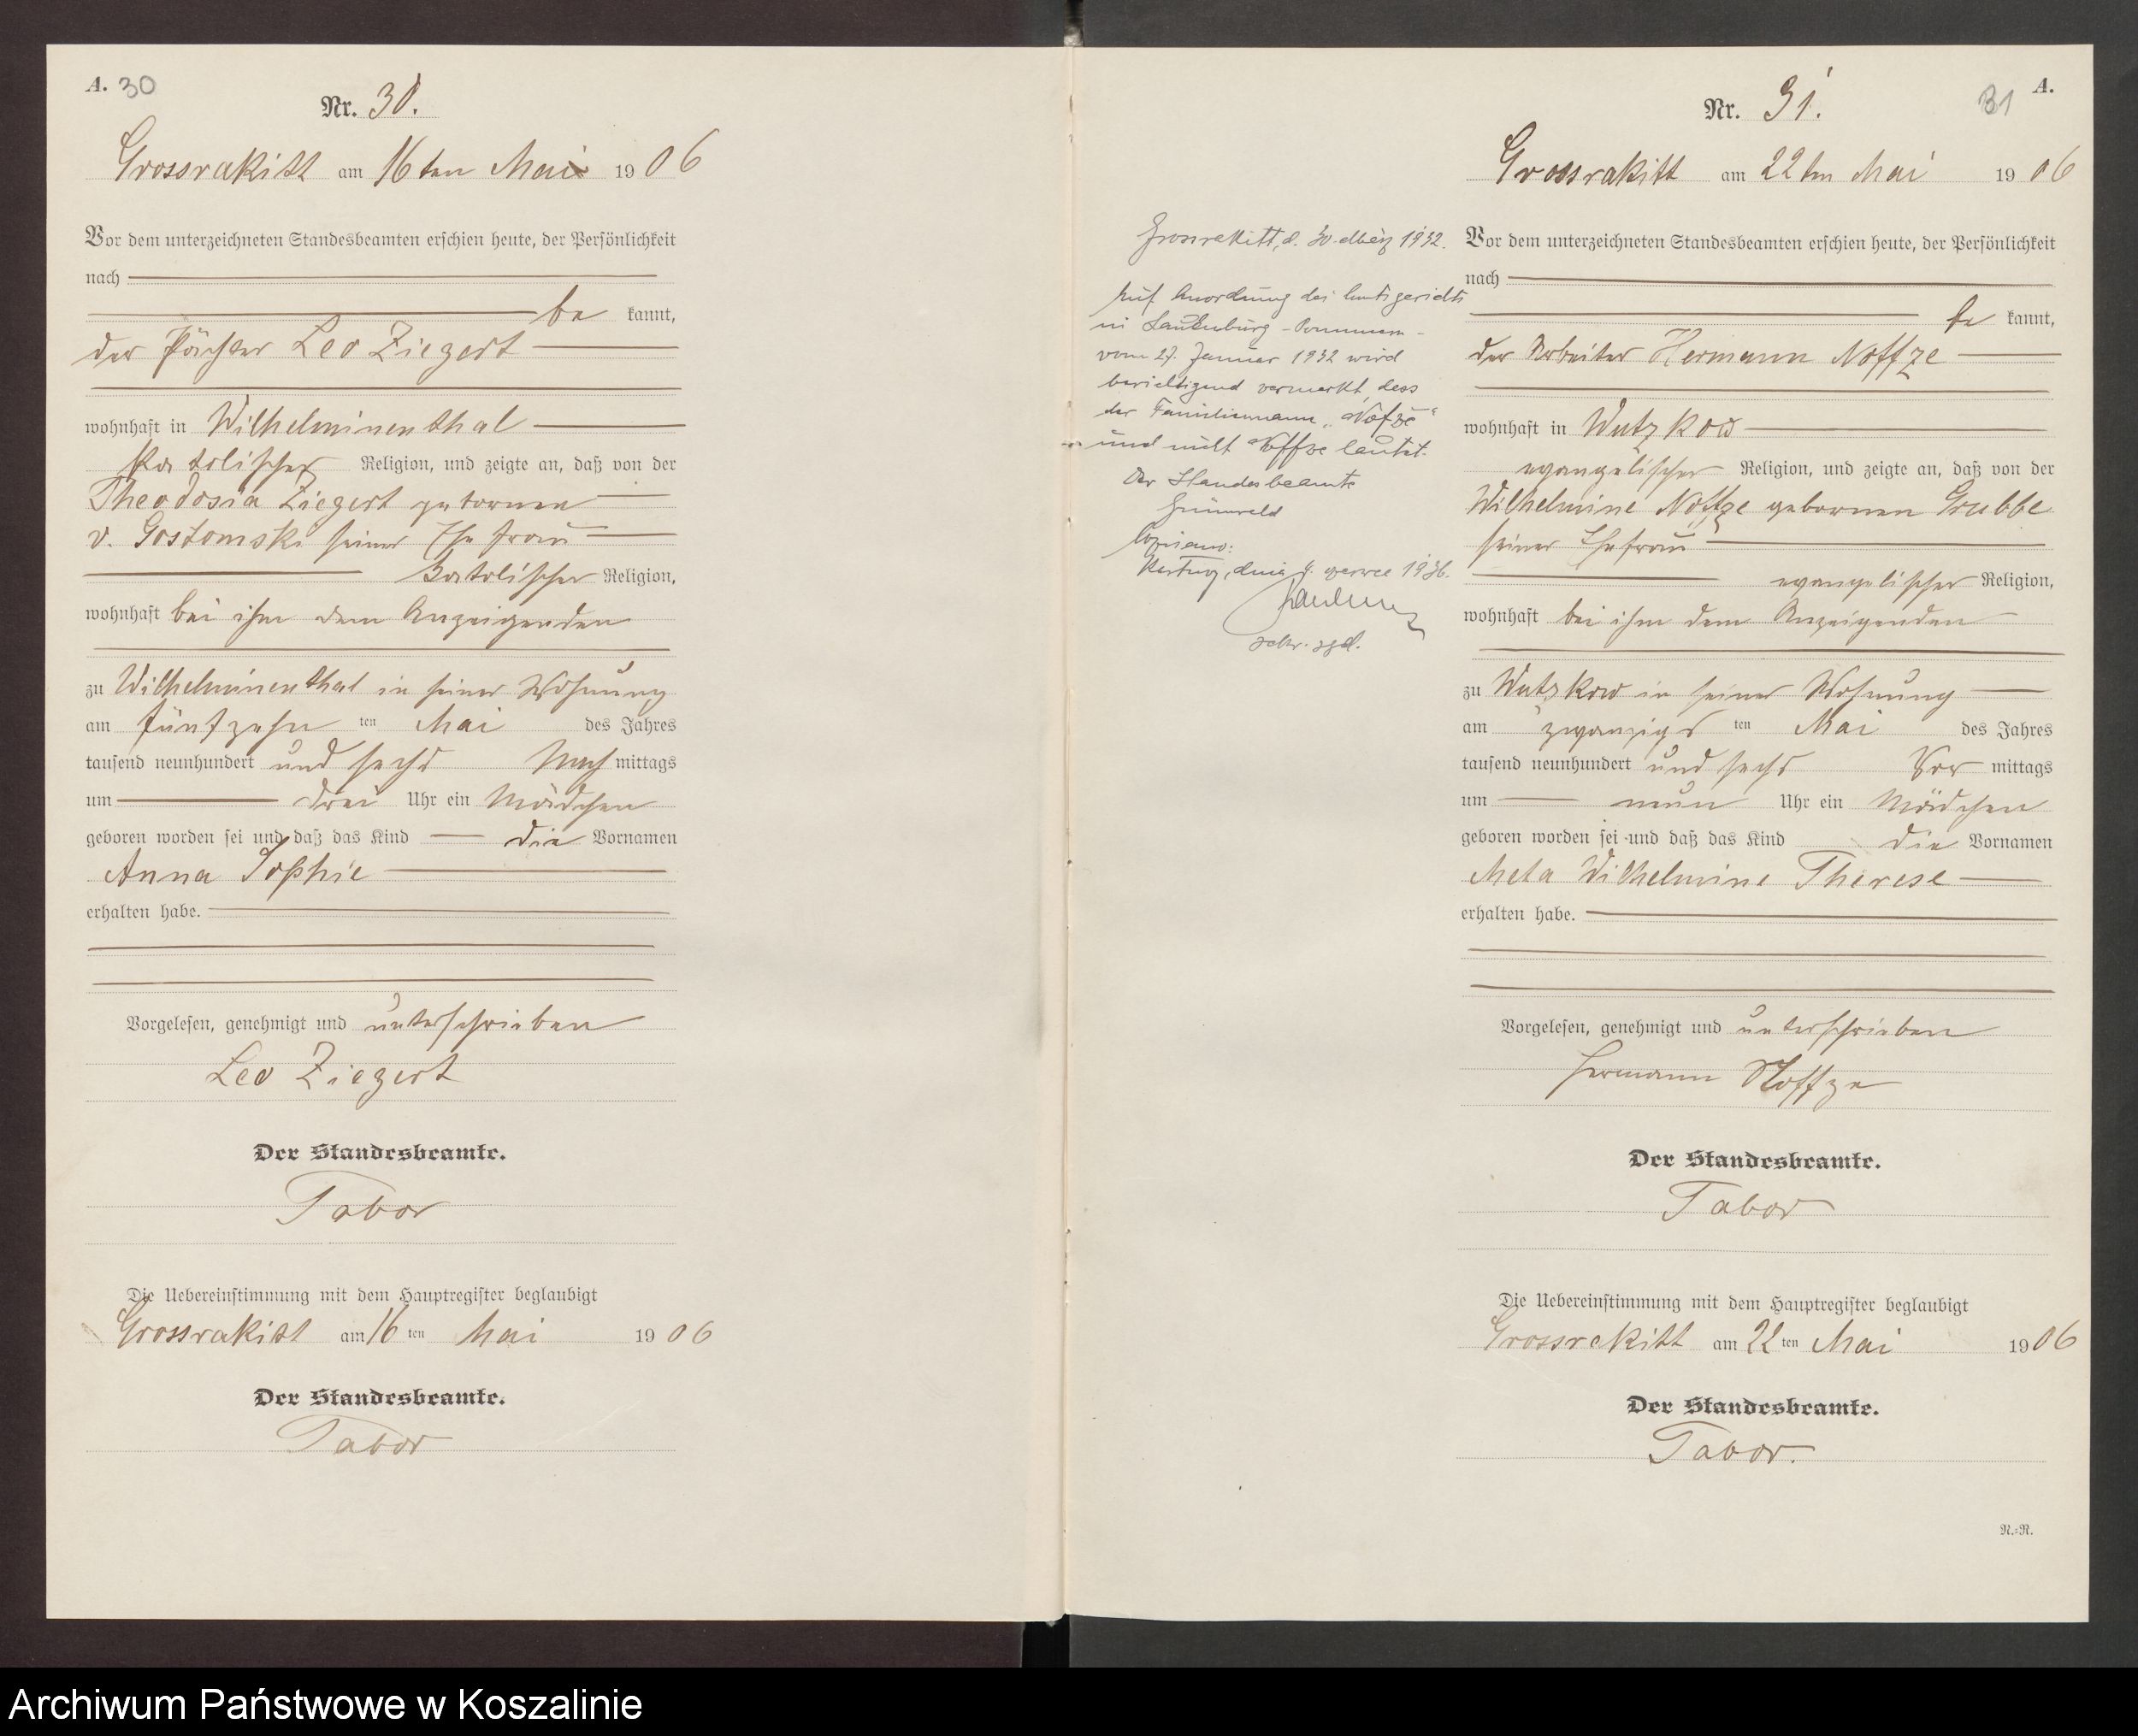 A. 30
Nr. 30.
Grossrakitt am 16ten Mai 1906
Vor dem unterzeichneten Standesbeamten erschien heute, der Persönlichkeit
nach
be kannt,
der Pächter Leo Ziegert
wohnhaft in Wilhelminenthal
katolischer Religion, und zeigte an, daß von der
Theodosia Ziegert gebornen
v. Gostomski seiner Ehefrau
katolischer Religion,
wohnhaft bei ihm dem Anzeigenden
zu Wilhelminenthal in seiner Wohnung
am fünfzehn ten Mai des Jahres
tausend neunhundert und sechs Nach mittags
um drei Uhr ein Mädchen
geboren worden sei und daß das Kind die Vornamen
Anna Sophie
erhalten habe.
Vorgelesen, genehmigt und unterschrieben
Leo Ziegert
Der Standesbeamte.
Tabor
Die Uebereinstimmung mit dem Hauptregister beglaubigt
Grossrakitt am 16 ten Mai 1906
Der Standesbeamte.
Tabor
Grossrakitt, d. 30. März 1932.
Auf Anordnung des Amtsgerichts
in Lauenburg - Pommern -
vom 27. Januar 1932 wird
berichtigend vermerkt, dass
der Familienname „Nofze“
und nicht Noffze lautet.
Der Standesbeamte
Kartuzy, dnia 4. czerwca 1936.
sekr. sąd.
31 A.
Nr. 31.
Grossrakitt am 22ten Mai 1906
Vor dem unterzeichneten Standesbeamten erschien heute, der Persönlichkeit
nach
be kannt,
der Arbeiter Hermann Noffze
wohnhaft in Wutzkow
evangelischer Religion, und zeigte an, daß von der
Wilhelmine Noffze gebornen Grubbe
seiner Ehefrau
evangelischer Religion,
wohnhaft bei ihm dem Anzeigenden
zu Wutzkow in seiner Wohnung
am zwanzigs ten Mai des Jahres
tausend neunhundert und sechs Vor mittags
um neun Uhr ein Mädchen
geboren worden sei und daß das Kind die Vornamen
Meta Wilhelmine Therese
erhalten habe.
Vorgelesen, genehmigt und unterschrieben
Hermann Noffze
Der Standesbeamte.
Tabor
Die Uebereinstimmung mit dem Hauptregister beglaubigt
Grossrakitt am 22 ten Mai 1906
Der Standesbeamte.
Tabor.
R.=R.
Archiwum Państwowe w Koszalinie